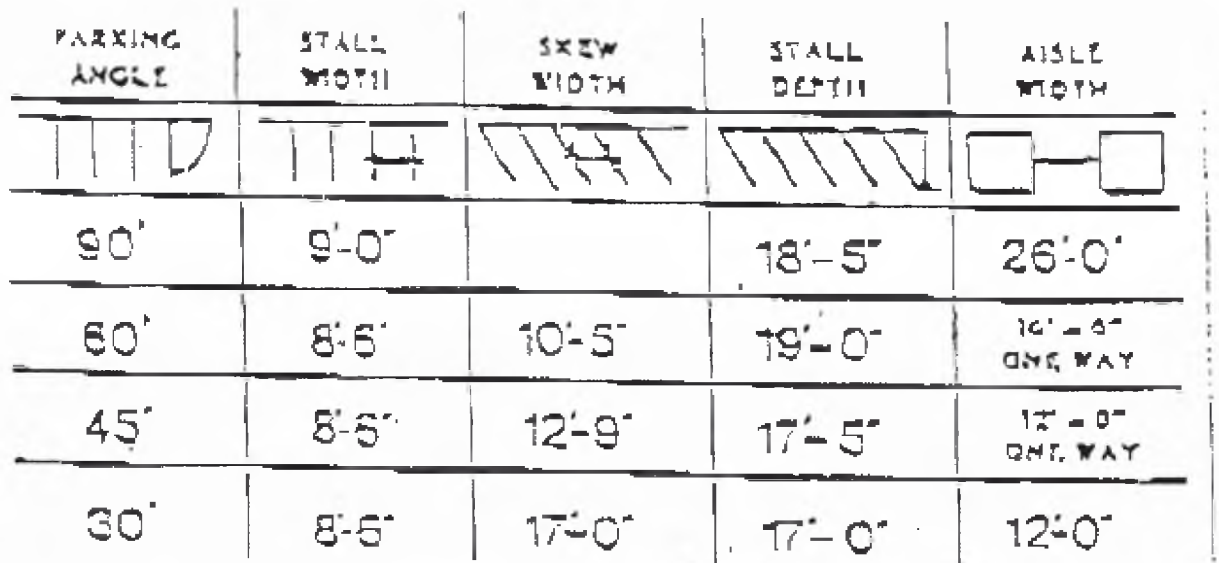 PARKING ANGLE STALL WIDTH SKEW WIDTH STALL DEPTH AISLE WIDTH
90° 9'-0" 18'-5" 26'-0"
60° 8'-6" 10'-5" 19'-0"
ONE WAY
45° 8'-6" 12'-9" 17'-5"
ONE WAY
30° 8'-6" 17'-0" 17'-0" 12'-0"